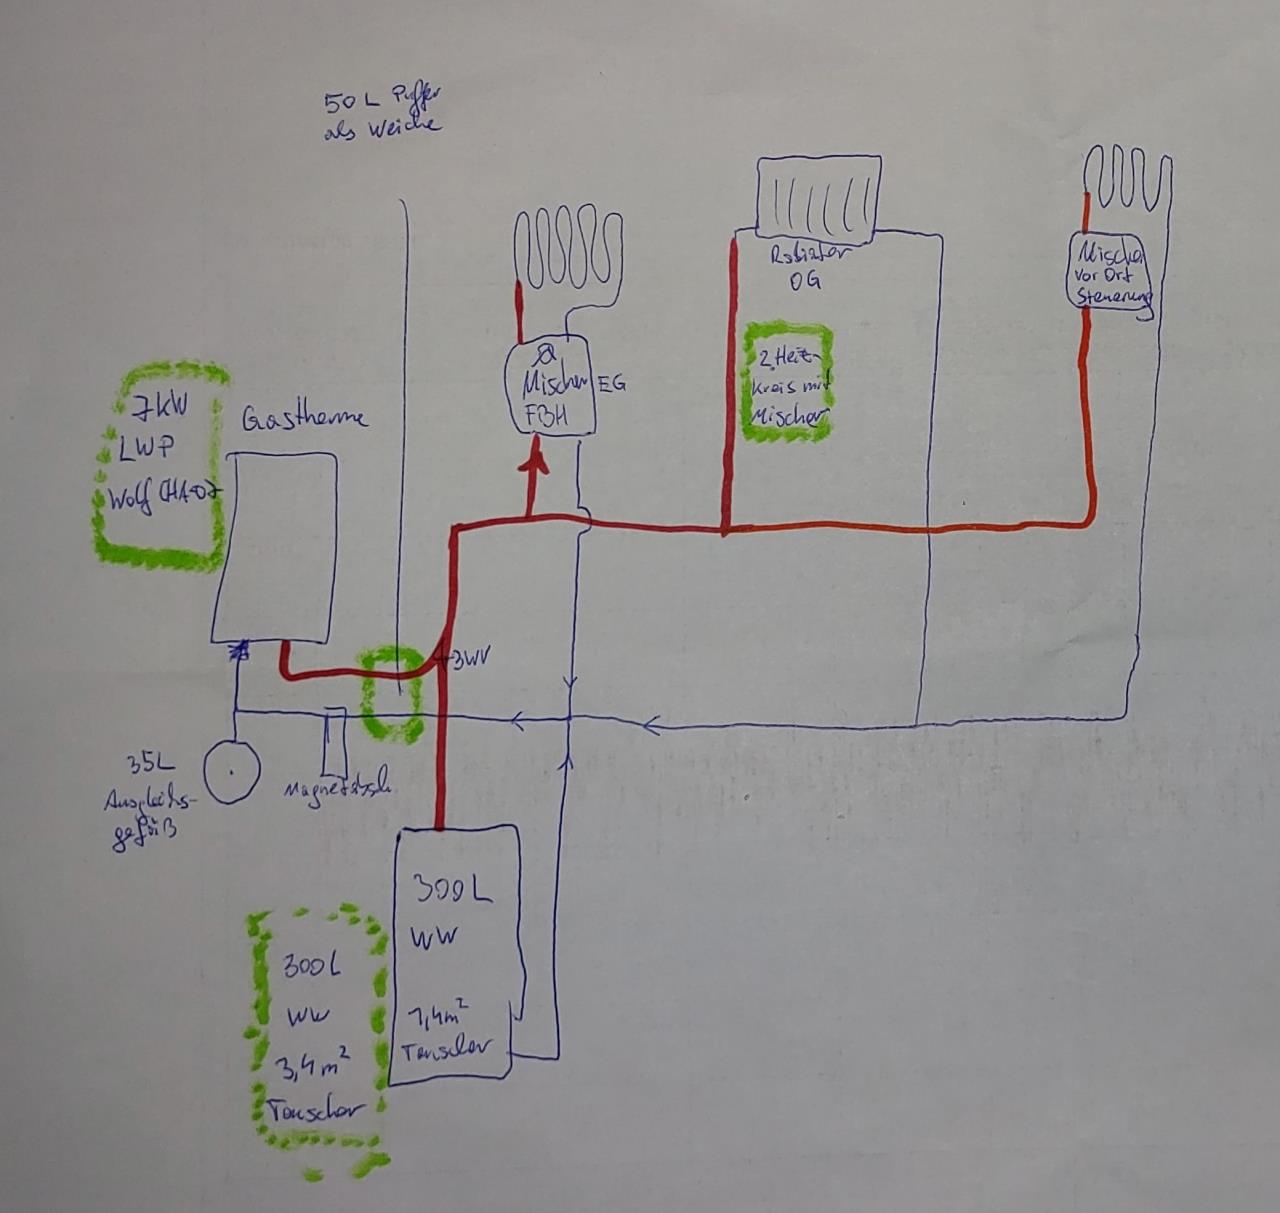 50 L Puffer
als Weiche
7kW
LWP
Wolf CHA-07
Gastherme
Mischer
FBH
EG
Radiator
OG
2. Heiz-
kreis mit
Mischer
Mischer
vor Ort
Steuerung
3WV
35L
Ausgleichs-
gefäß
300L
WW
1,4m²
Tauscher
300L
WW
3,4m²
Tauscher